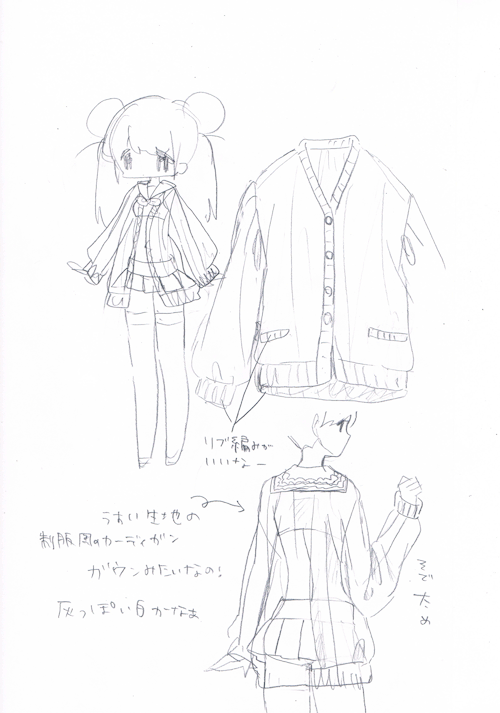 リブ編みが
いいなー
うすい生地の
制服風のカーディガン
ガウンみたいなの!
灰っぽい白かなぁ
そで太め